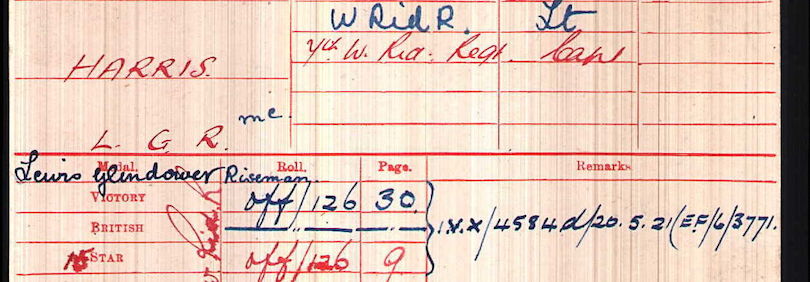 W Rid R. Lt
HARRIS. W. Rid. Regt. Capt
L. G. R. mc.
Medal. Roll. Page. Remarks
Lewis Glendower Riseman
VICTORY off/126 30
BRITISH " " IVX/4584d/20.5.21(EF/6/3771.
15 STAR off/126 9